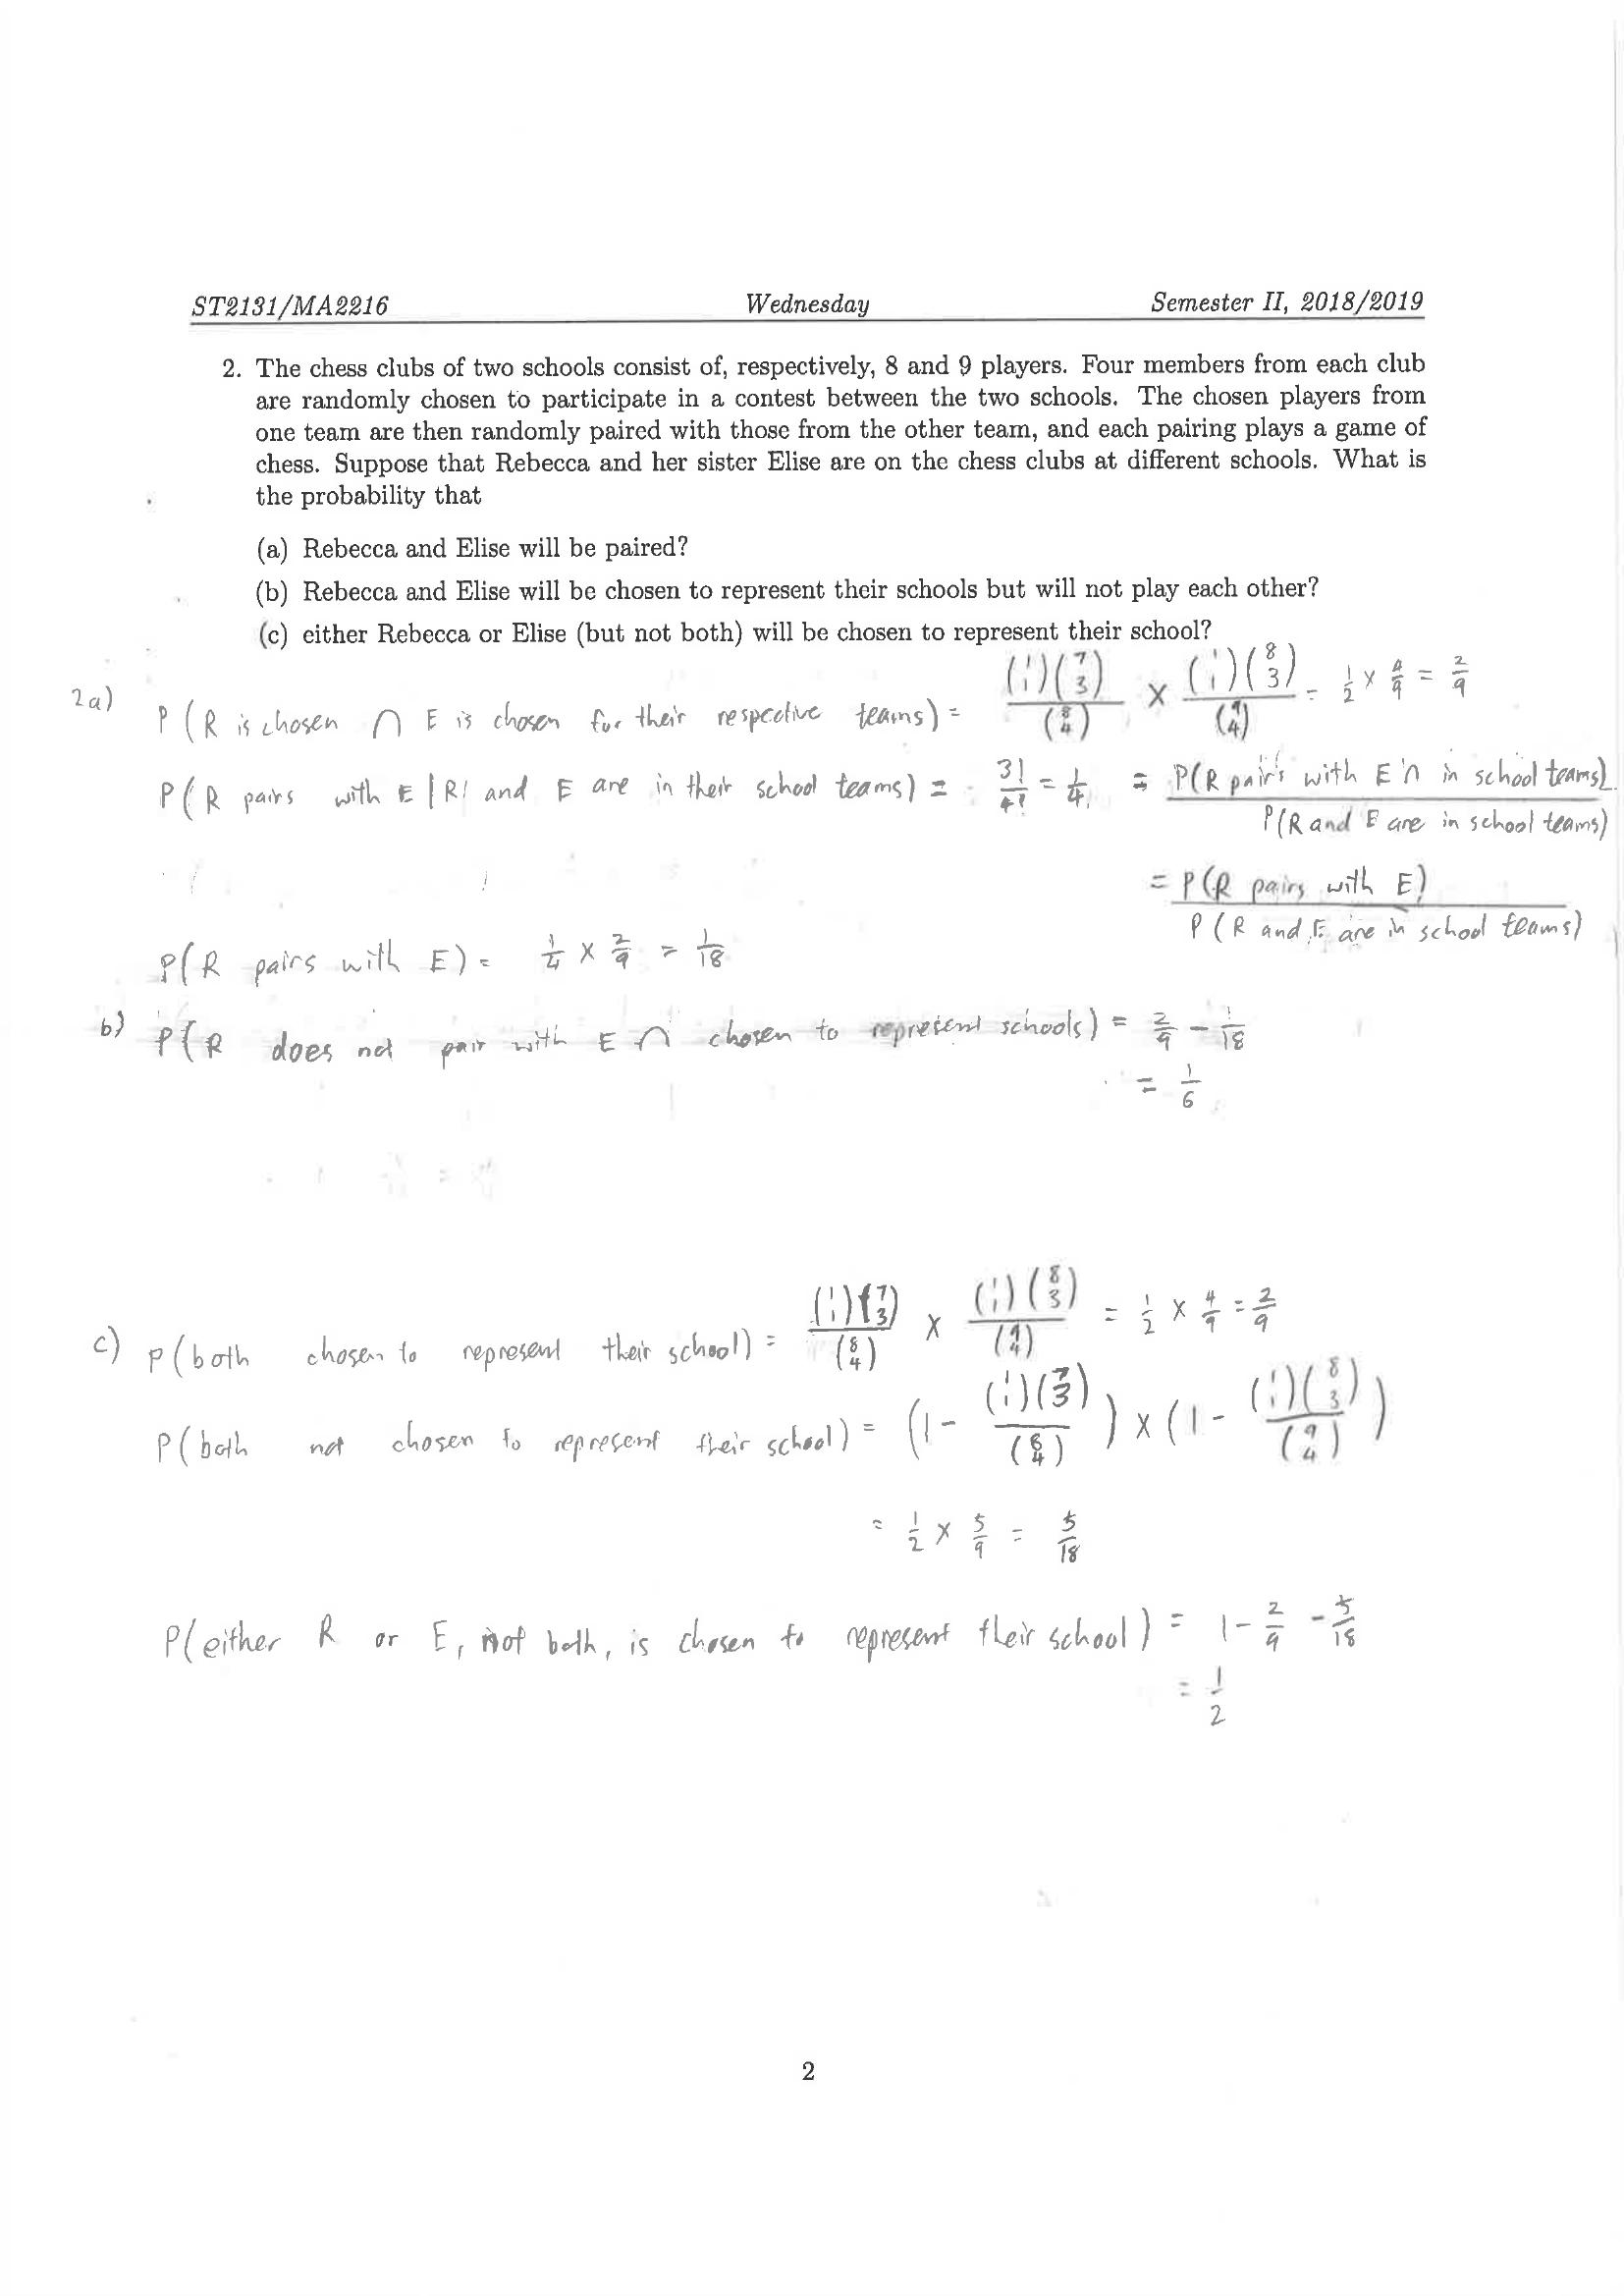 ST2131/MA2216 Wednesday Semester II, 2018/2019
2. The chess clubs of two schools consist of, respectively, 8 and 9 players. Four members from each club
are randomly chosen to participate in a contest between the two schools. The chosen players from
one team are then randomly paired with those from the other team, and each pairing plays a game of
chess. Suppose that Rebecca and her sister Elise are on the chess clubs at different schools. What is
the probability that
(a) Rebecca and Elise will be paired?
(b) Rebecca and Elise will be chosen to represent their schools but will not play each other?
(c) either Rebecca or Elise (but not both) will be chosen to represent their school?
2a) P(R is chosen ∩ E is chosen for their respective teams) = (1 1)(7 3)/(8 4) × (1 1)(8 3)/(9 4) = 1/2 × 4/9 = 2/9
P(R pairs with E | R and E are in their school teams) = 3!/4! = 1/4 = P(R pairs with E ∩ in school teams)/P(R and E are in school teams)
= P(R pairs with E)/P(R and E are in school teams)
P(R pairs with E) = 1/4 × 2/9 = 1/18
b) P(R does not pair with E ∩ chosen to represent schools) = 2/9 - 1/18
= 1/6
c) P(both chosen to represent their school) = (1 1)(7 3)/(8 4) × (1 1)(8 3)/(9 4) = 1/2 × 4/9 = 2/9
P(both not chosen to represent their school) = (1 - (1 1)(7 3)/(8 4)) × (1 - (1 1)(8 3)/(9 4))
= 1/2 × 5/9 = 5/18
P(either R or E, not both, is chosen to represent their school) = 1 - 2/9 - 5/18
= 1/2
2